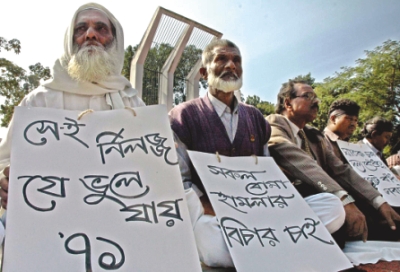 সে-ই নির্লজ্জ
যে ভুলে
যায়
'৭১
সকল বোমা
হামলার
বিচার চাই